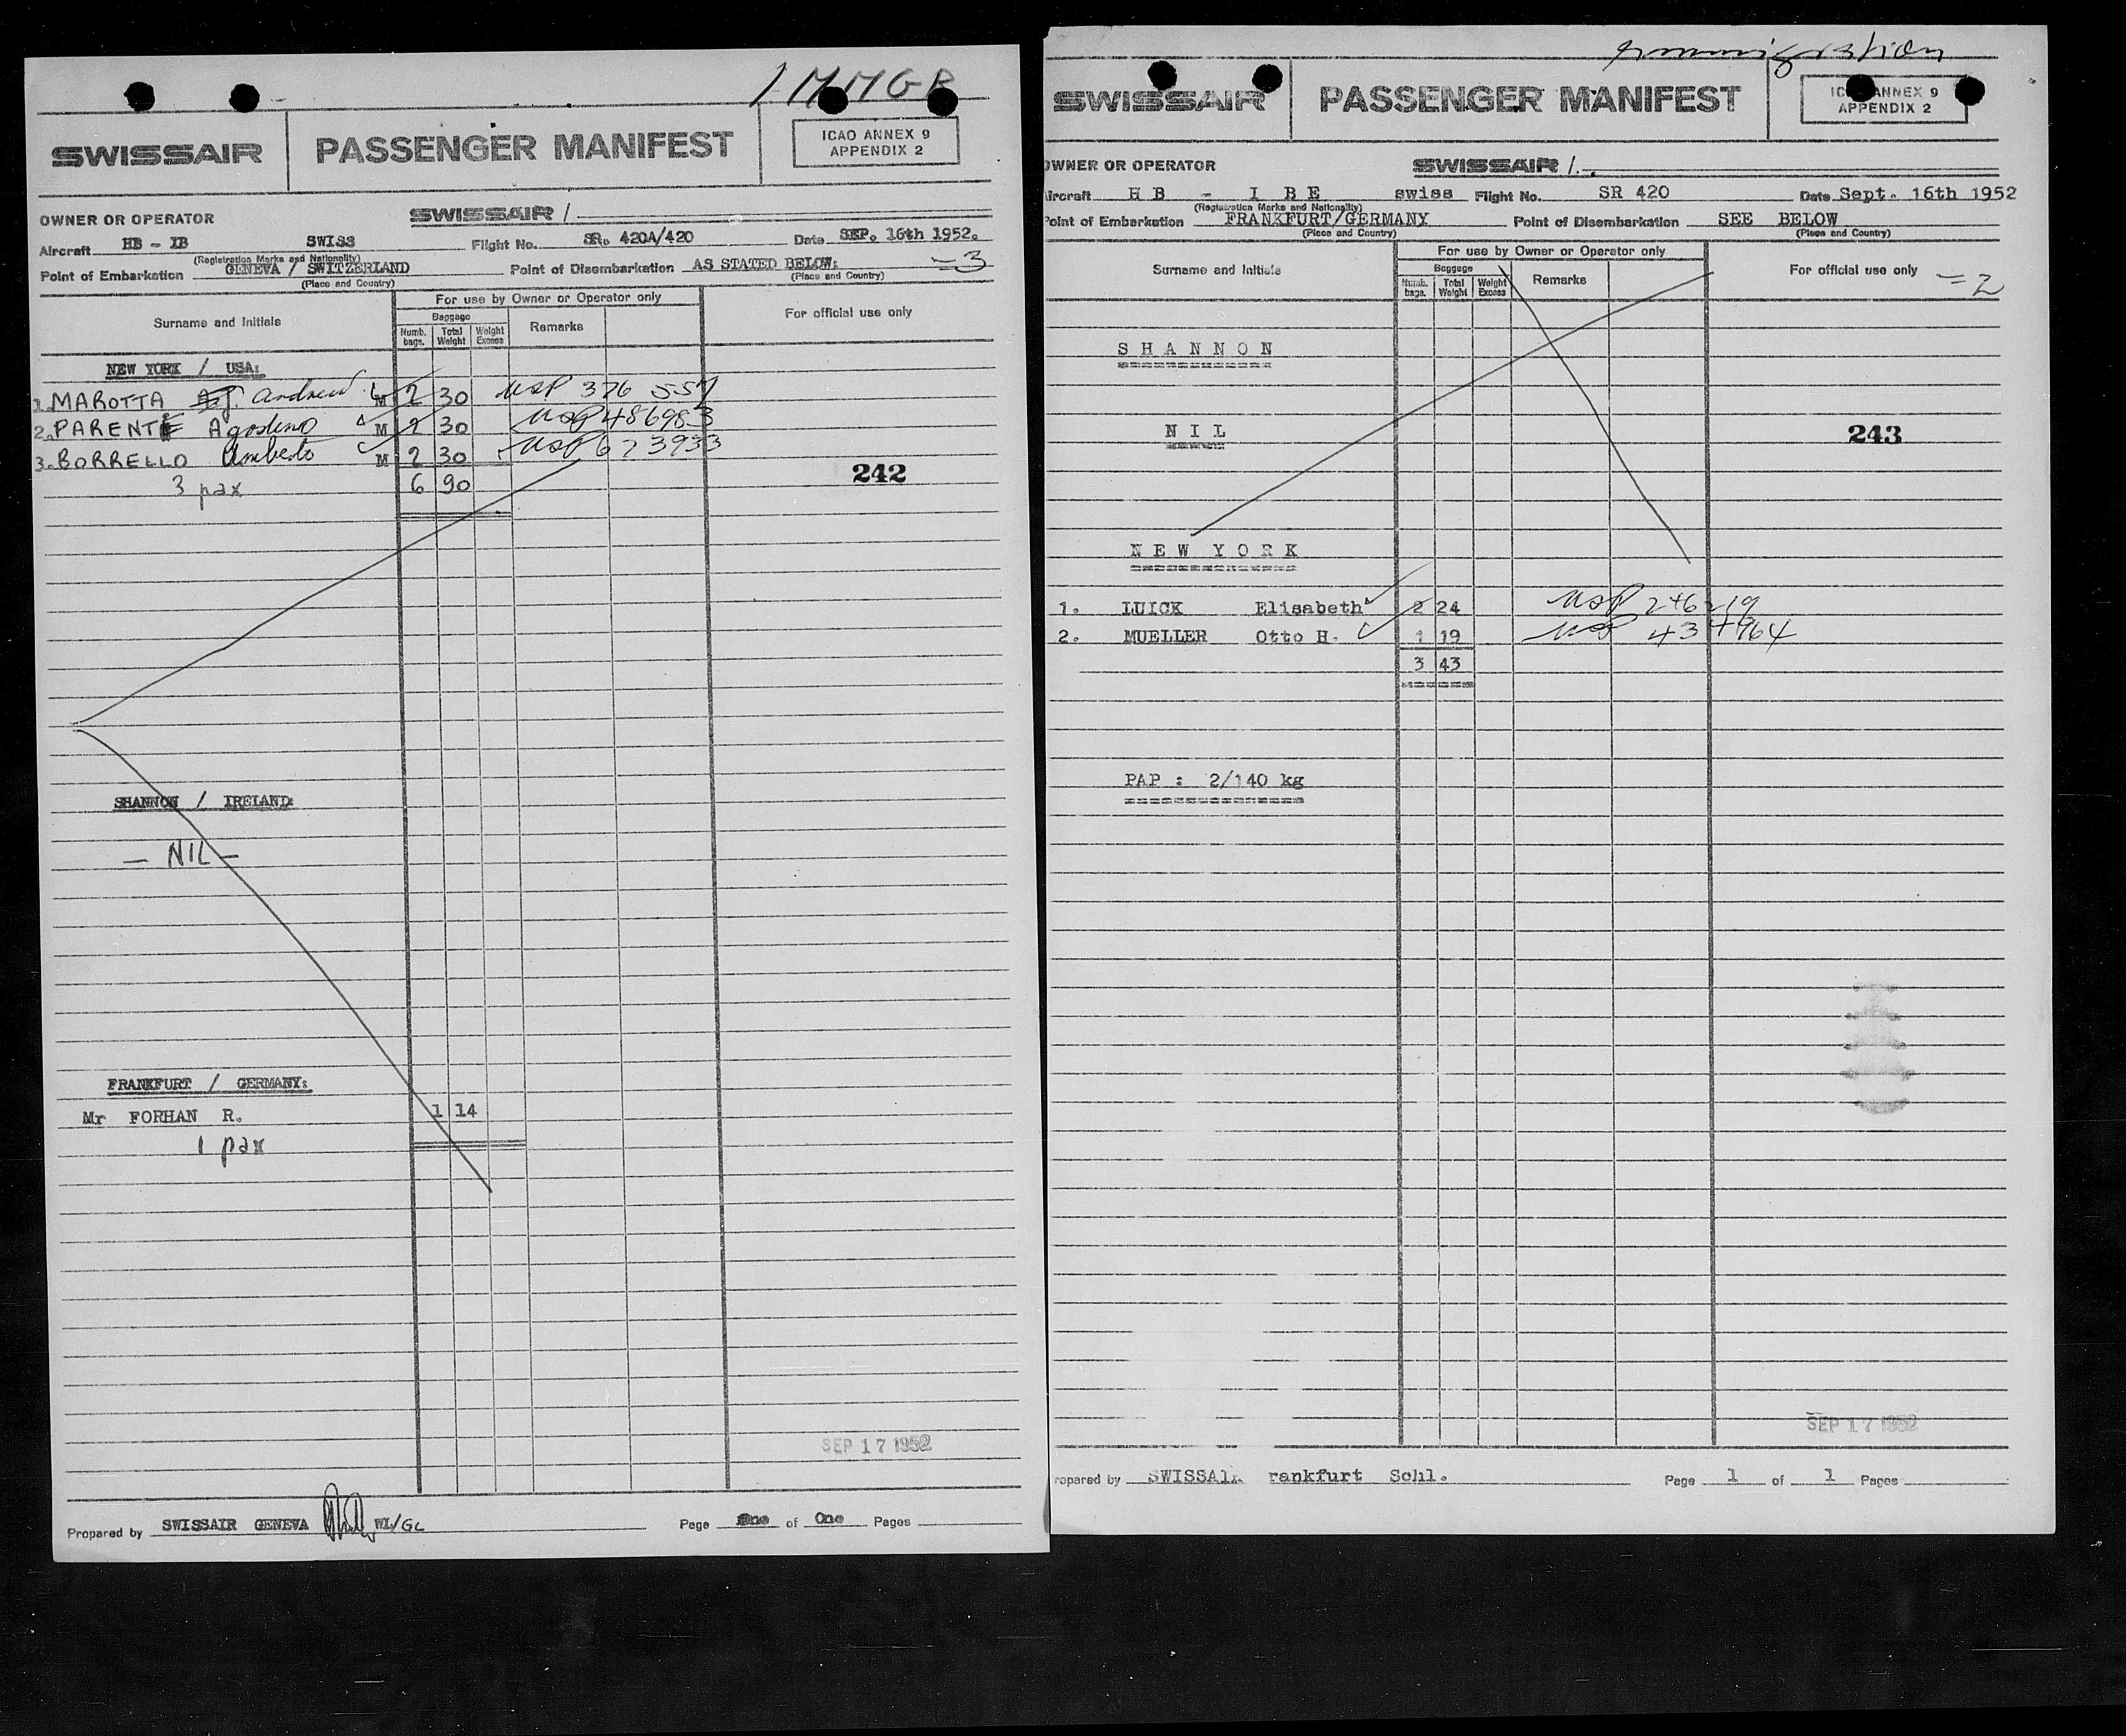 IMMGR
SWISSAIR
PASSENGER MANIFEST
ICAO ANNEX 9
APPENDIX 2
OWNER OR OPERATOR SWISSAIR /
Aircraft HB - IB SWISS Flight No. SR. 420A/420 Date SEP. 16th 1952.
(Registration Marks and Nationality)
Point of Embarkation GENEVA / SWITZERLAND Point of Disembarkation AS STATED BELOW: =3
(Place and Country) (Place and Country)
Surname and Initials
For use by Owner or Operator only
Baggage
Numb. bags. Total Weight Weight Excess
Remarks
For official use only
NEW YORK / USA:
1. MAROTTA Andrew M 2 30 USP 376 557
2. PARENTE Agostino M 2 30 USP 486983
3. BORRELLO Umberto M 2 30 USP 673933
3 pax 6 90
242
SHANNON / IRELAND:
— NIL —
FRANKFURT / GERMANY:
Mr FORHAN R. 1 14
1 pax
SEP 17 1952
Prepared by SWISSAIR GENEVA WL/GL Page One of One Pages
Immigration
SWISSAIR
PASSENGER MANIFEST
ICAO ANNEX 9
APPENDIX 2
OWNER OR OPERATOR SWISSAIR /
Aircraft H B - I B E swiss Flight No. SR 420 Date Sept. 16th 1952
(Registration Marks and Nationality)
Point of Embarkation FRANKFURT/GERMANY Point of Disembarkation SEE BELOW
(Place and Country) (Place and Country)
Surname and Initials
For use by Owner or Operator only
Baggage
Numb. bags. Total Weight Weight Excess
Remarks
For official use only =2
S H A N N O N
N I L
243
N E W Y O R K
1. LUICK Elisabeth 2 24 USP 246219
2. MUELLER Otto H. 1 19 USP 434964
3 43
PAP : 2/140 kg
SEP 17 1952
repared by SWISSAIR rankfurt Schl. Page 1 of 1 Pages